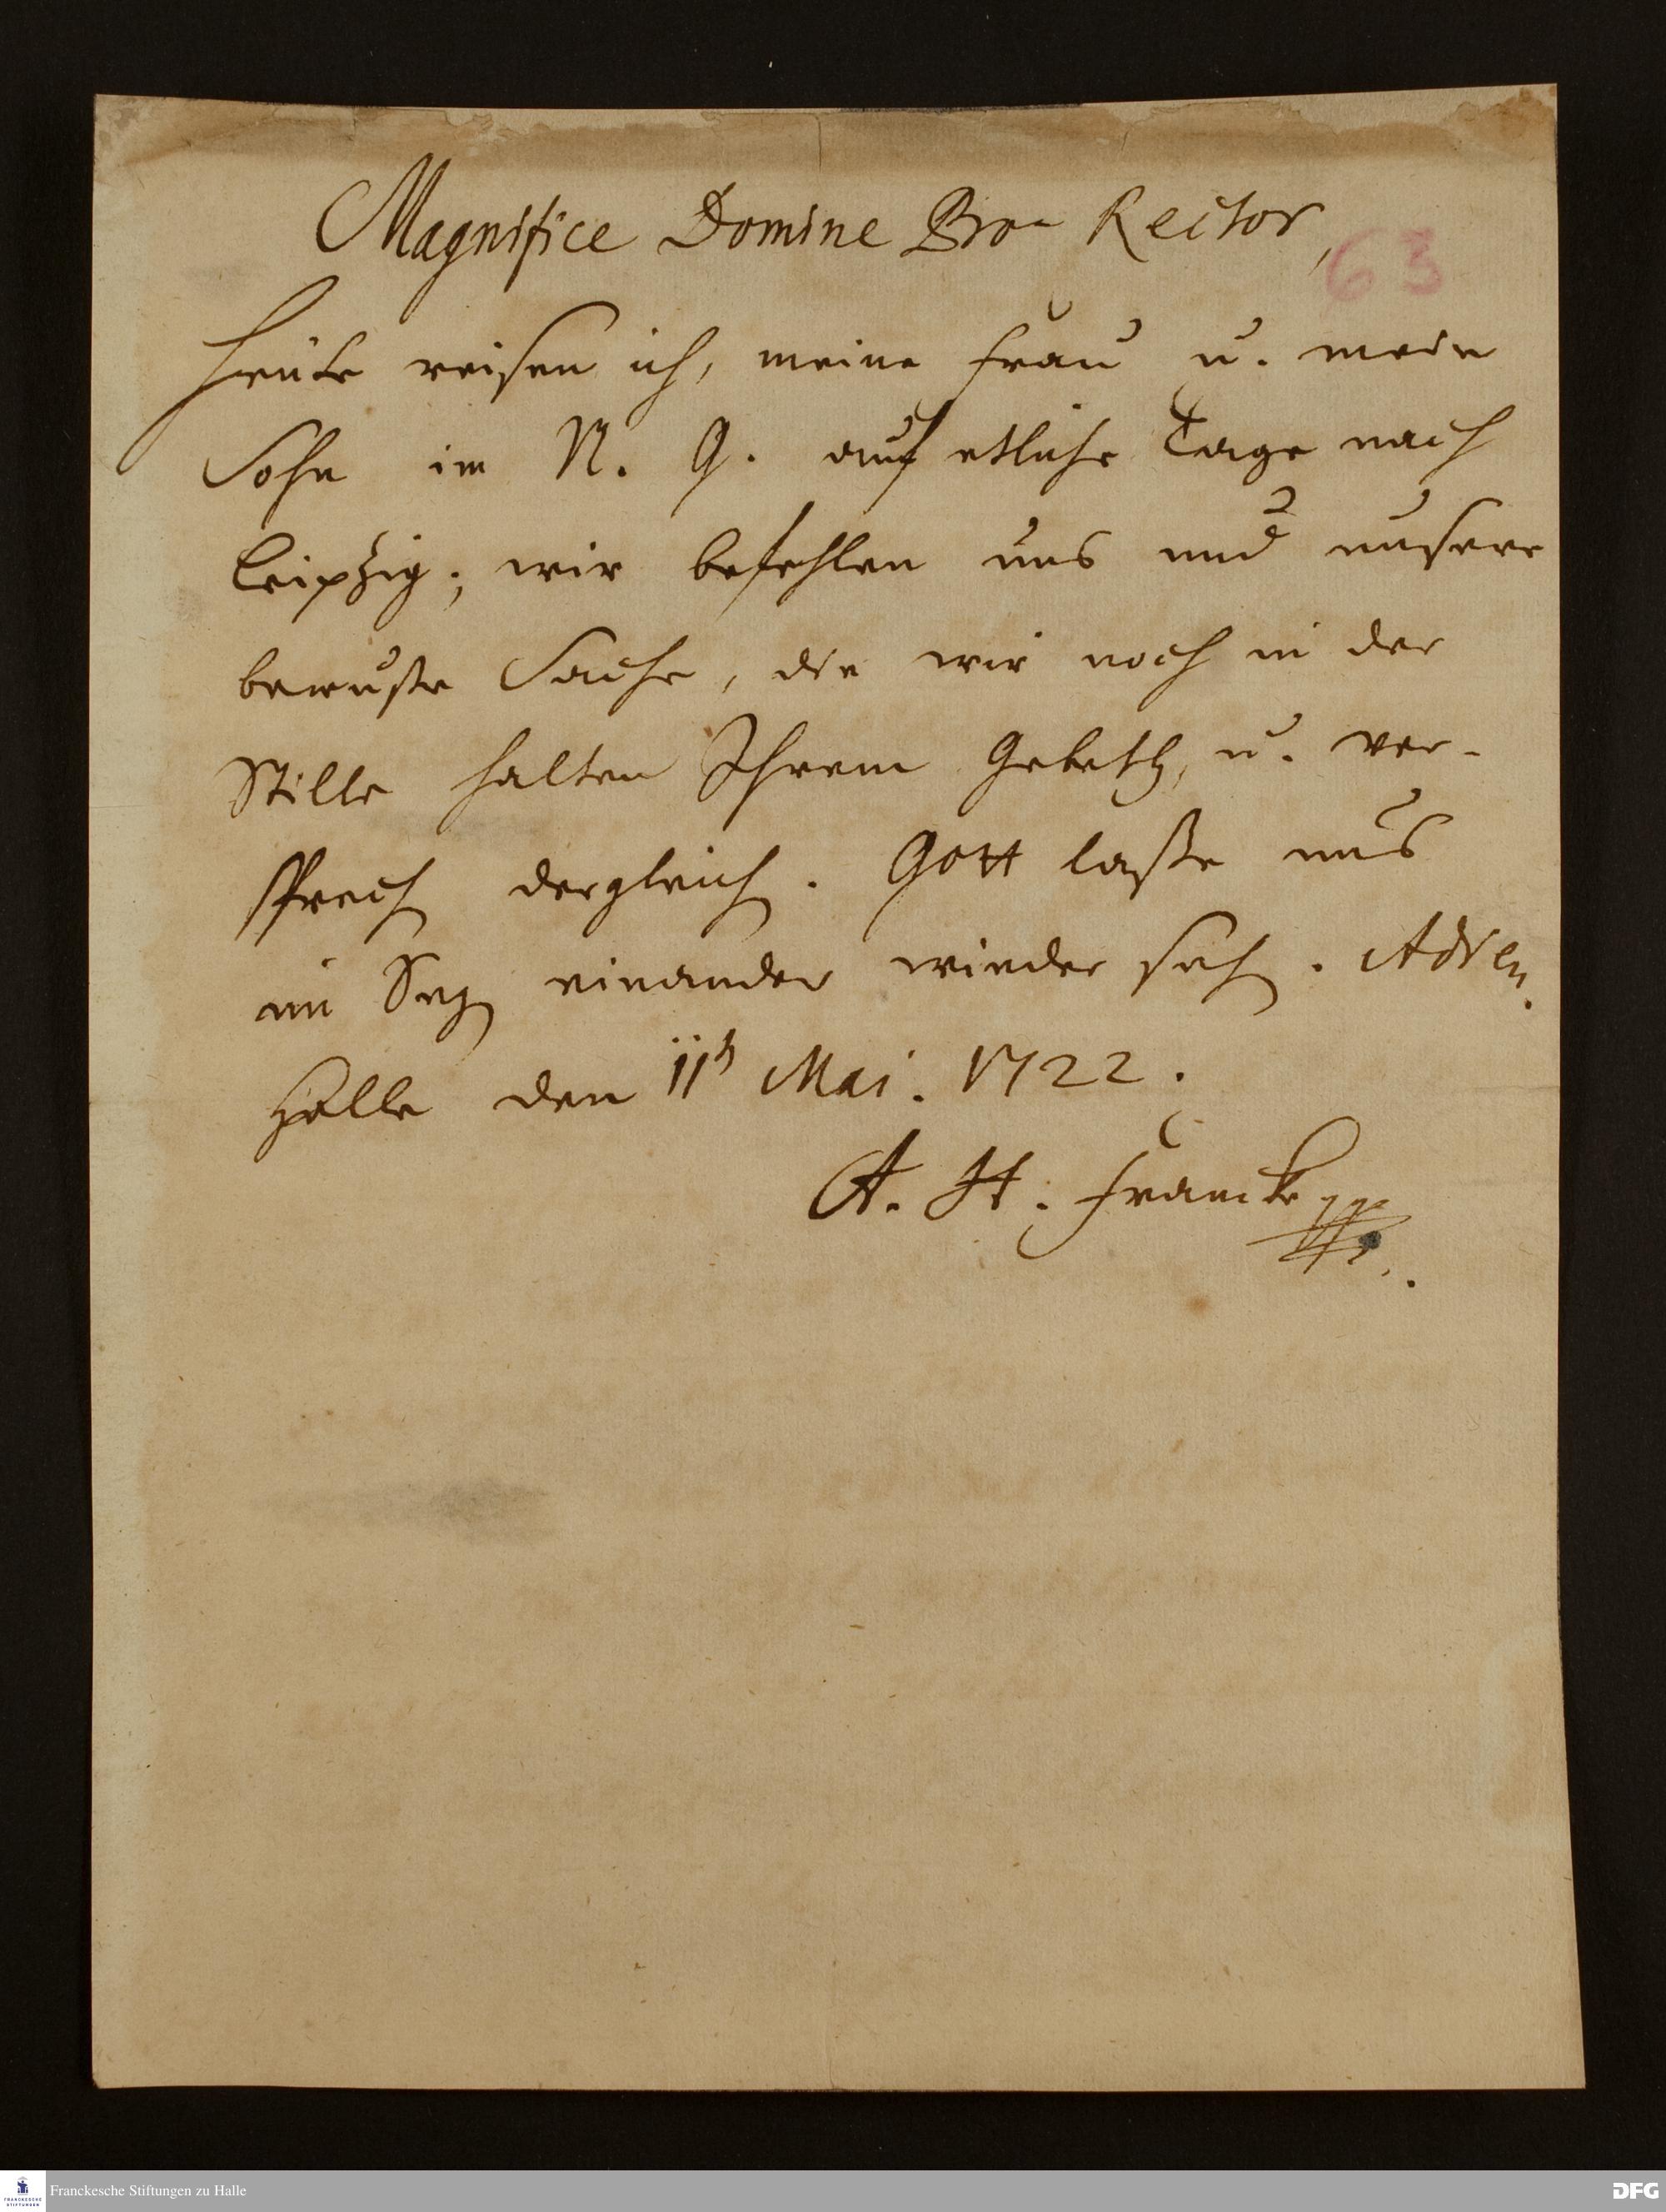 Magnifice Domine Pro-Rector,
63
Heüte reisen ich, meine Frau u. mein
Sohn im N. G. auf etliche Tage nach
Leipzig; wir befehlen uns und unsere
bewuste Sache, die wir noch in der
Stille halten Ihrem Gebeth, u. ver-
sprech dergleich. Gott laße uns
im Seg einander wieder seh. Adieu.
Halle den 11 Mai. 1722.
A. H. Francke
Franckesche Stiftungen zu Halle
FRANCKESCHE
STIFTUNGEN
DFG